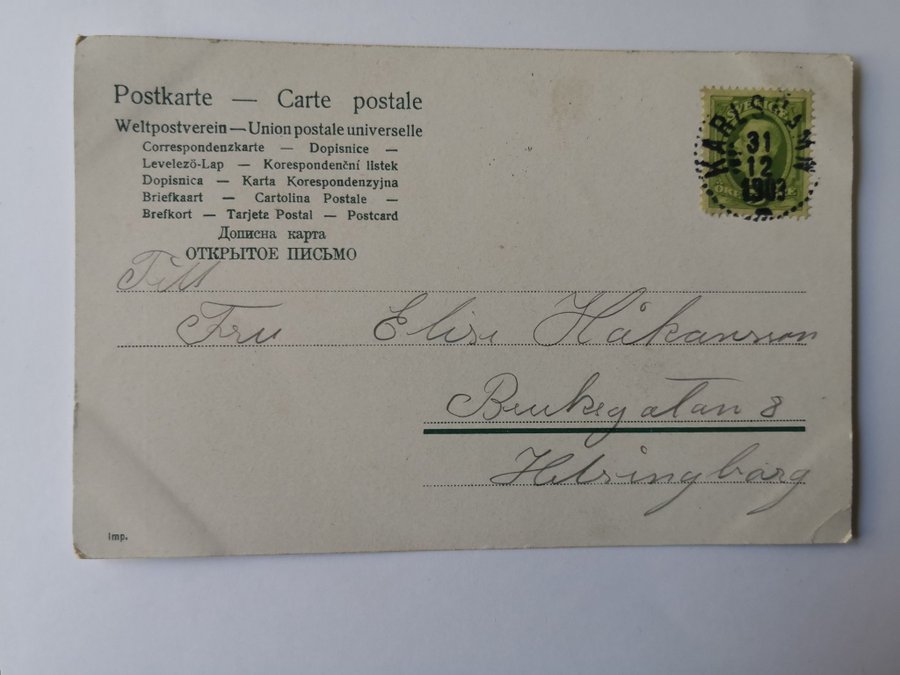 Postkarte — Carte postale
Weltpostverein — Union postale universelle
Correspondenzkarte — Dopisnice —
Levelezö-Lap — Korespondenční listek
Dopisnica — Karta Korespondenzyjna
Briefkaart — Cartolina Postale —
Brefkort — Tarjeta Postal — Postcard
Дописна карта
ОТКРЫТОЕ ПИСЬМО
SVERIGE
31
12
1903
Till
Fru Elise Håkansson
Bruksgatan 8
Helsingborg
Imp.